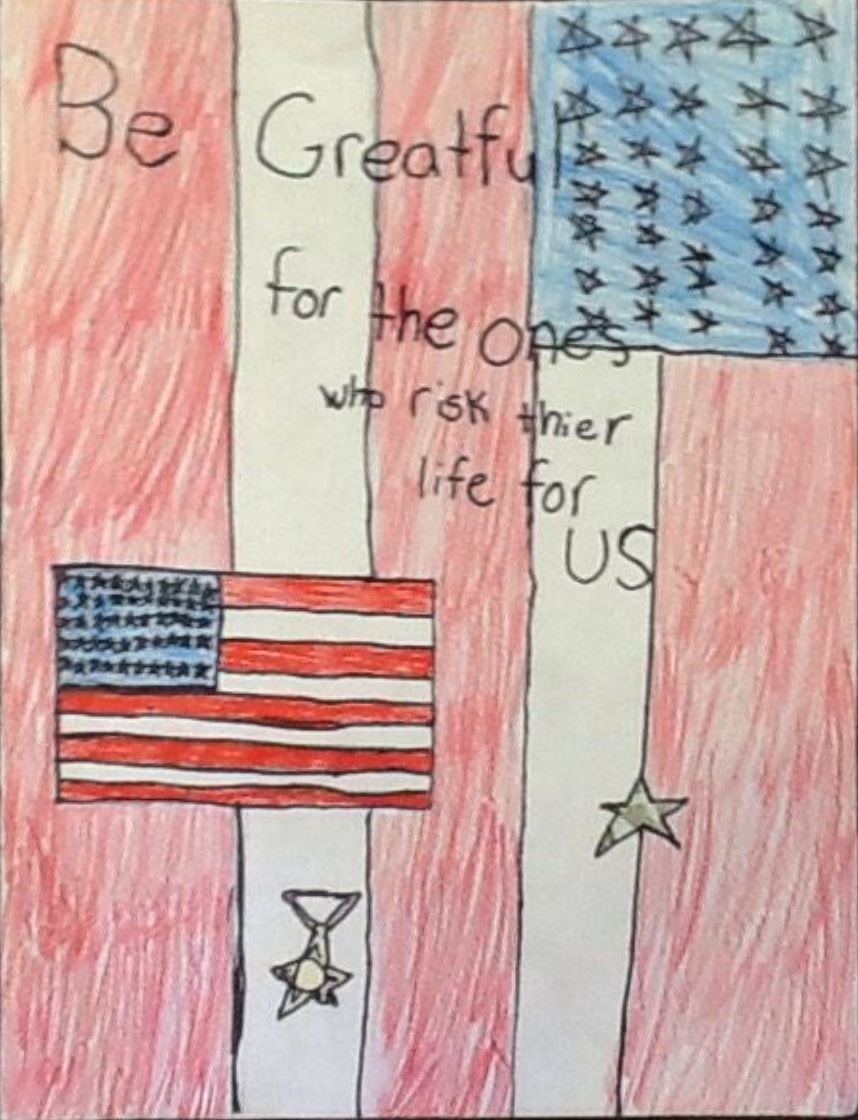 Be Greatful
for the ones
who risk thier
life for
US